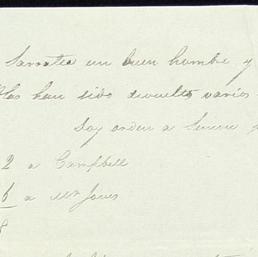 Sarratea un buen hombre y
han sido devueltos varios
Doy orden a
2 a Campbell
6 a Mr Jones
8